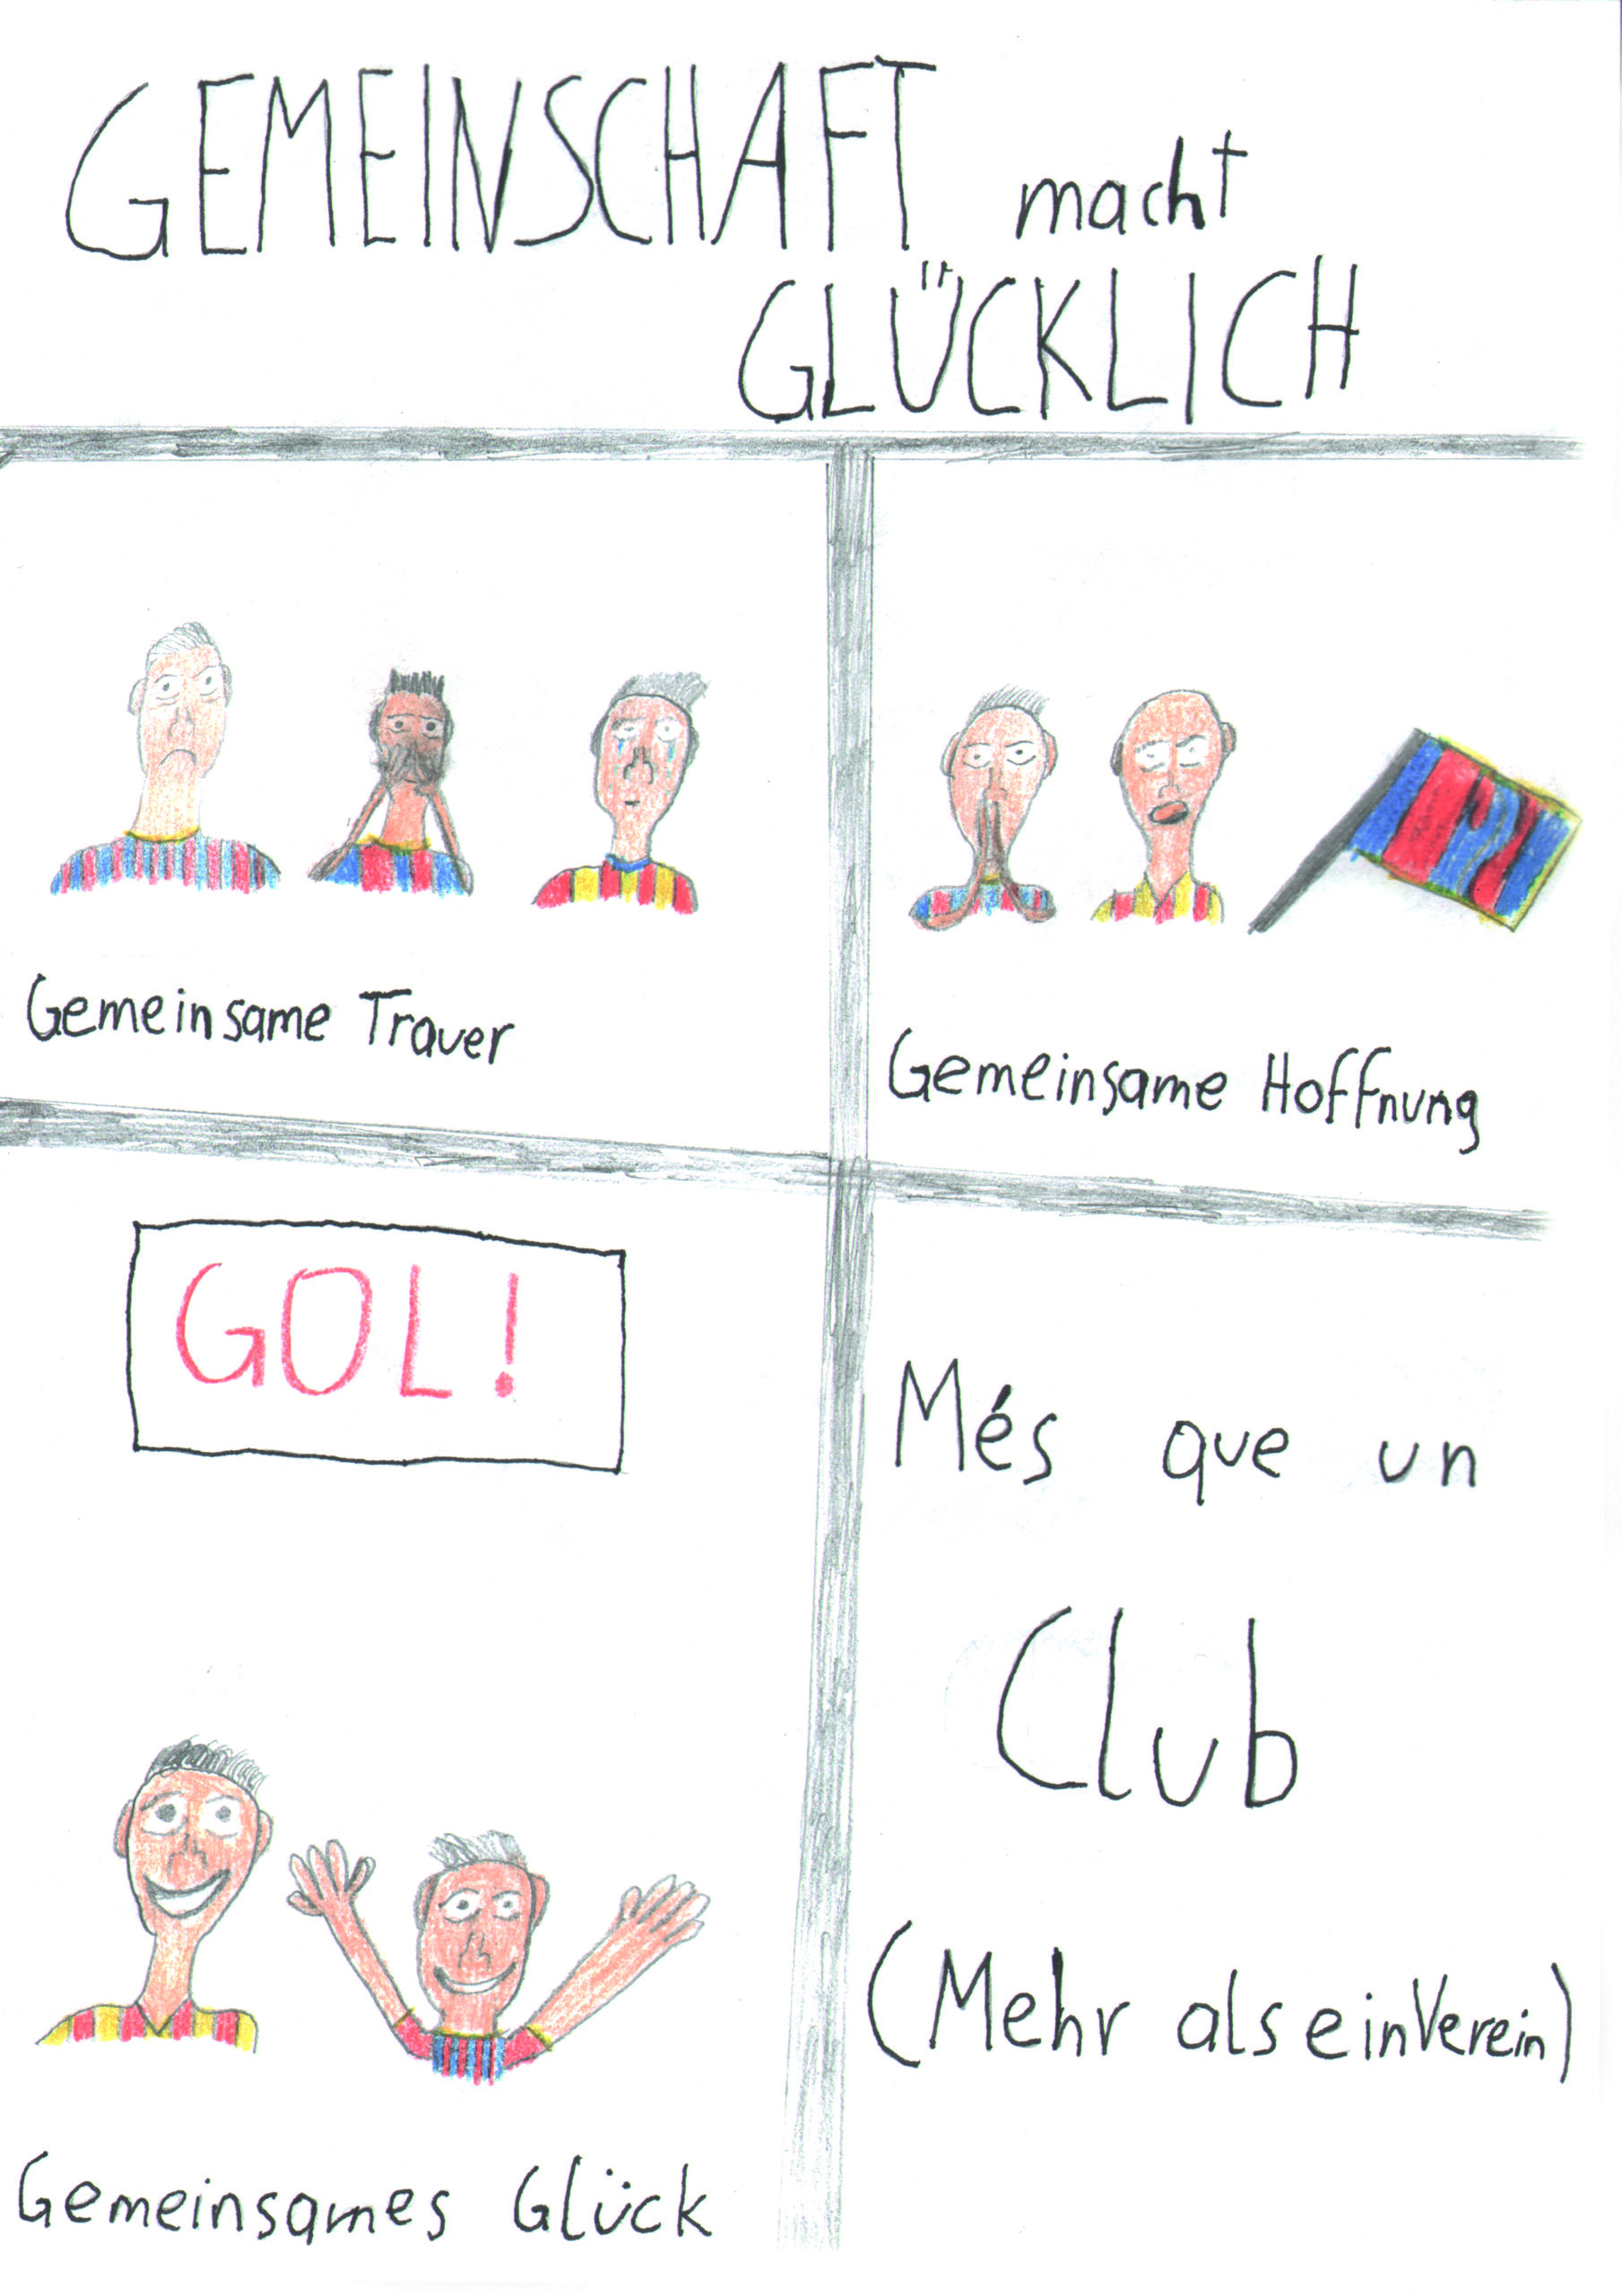 GEMEINSCHAFT macht
GLÜCKLICH
Gemeinsame Trauer
Gemeinsame Hoffnung
GOL!
Gemeinsames Glück
Més que un
Club
(Mehr als ein Verein)